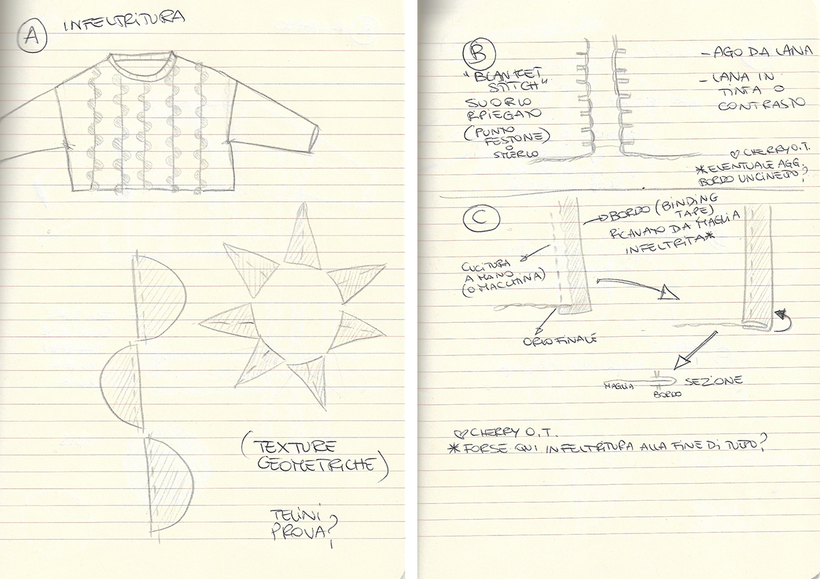 A INFELTRITURA
(TEXTURE
GEOMETRICHE)
TELINI
PROVA?
B
"BLANKET
STITCH"
SU ORLO
RPIEGATO
(PUNTO
FESTONE)
O
- AGO DA LANA
- LANA IN
TINTA O
CONTRASTO
♡ CHERRY O.T.
* EVENTUALE AGG.
BORDO UNCINETTO?
C
BORDO (BINDING
TAPE)
RICAVATO DA MAGLIA
INFELTRITA*
CUCITURA
A MANO
(O MACCHINA)
ORLO FINALE
MAGLIA
BORDO
SEZIONE
♡ CHERRY O.T.
* FORSE QUI INFELTRITURA ALLA FINE DI TUTTO?